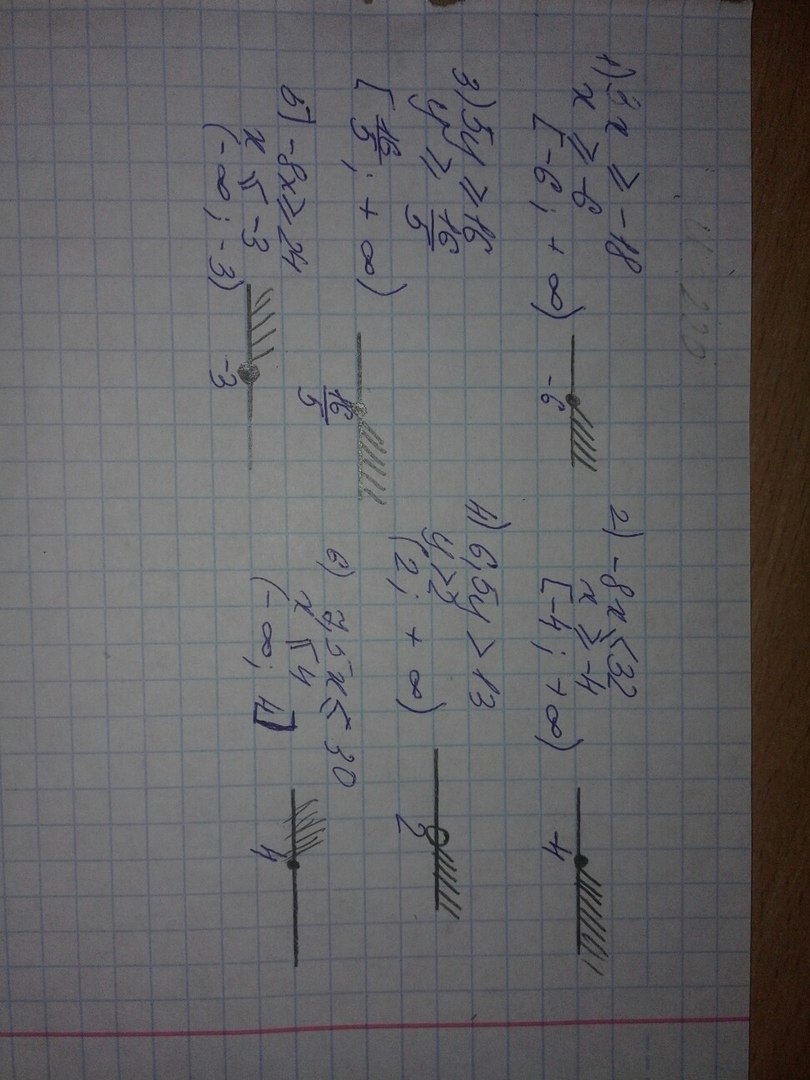 1) 3x ⩾ -18
x ⩾ -6
[-6; +∞)
-6
2) -8x ⩽ 32
x ⩾ -4
[-4; +∞)
-4
3) 5y ⩾ 16
y ⩾ 16/5
[16/5; +∞)
16/5
4) 6,5y > 13
y > 2
(2; +∞)
2
5) -8x ⩾ 24
x ⩽ -3
(-∞; -3)
-3
6) 7,5x ⩽ 30
x ⩽ 4
(-∞; 4]
4